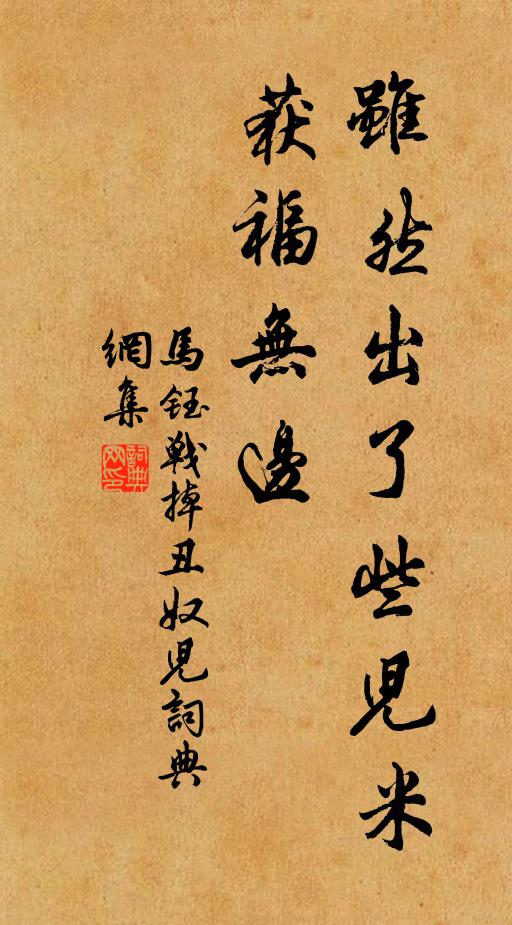 雖然出了些兒米
获福無邊
馬鈺戰掉丑奴兒詞典
網集
詞典網印